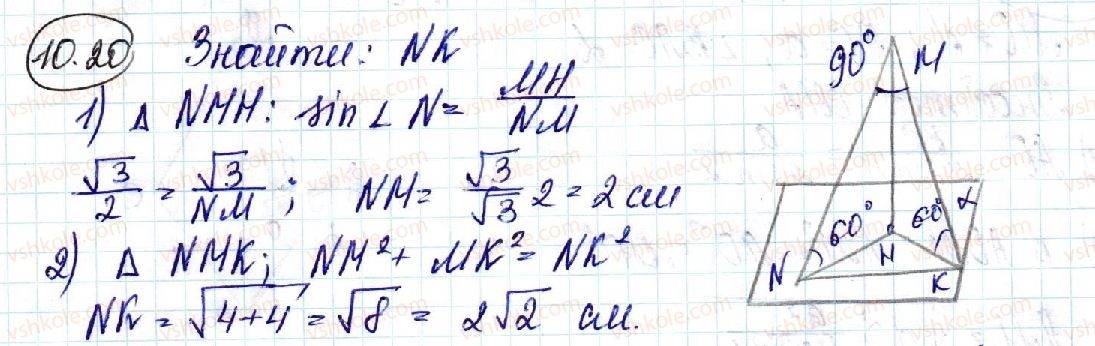 10.20 Знайти: NK
1) Δ NMH: sin∠N = MH/NM
√3/2 = √3/NM; NM = √3/√3 2 = 2 см
2) Δ NMK; NM² + MK² = NK²
NK = √(4+4) = √8 = 2√2 см.
90° M
60° 60° α
N H K